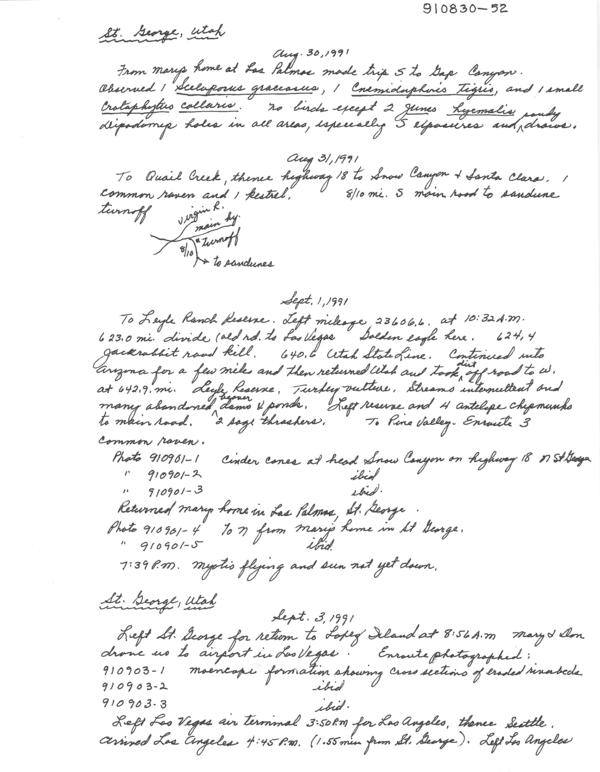 910830-52
St. George, Utah
Aug. 30, 1991
From Marys home at Las Palmas made trip S to Gap Canyon.
Observed 1 Sceloporus graciosus, 1 Cnemidophoris Tigris, and 1 small
Crotaphytus collaris. no birds except 2 Junco hyemalis
Dipodomys holes in all areas, especially S exposures and sandy draws.
Aug 31, 1991
To Quail Creek, thence highway 18 to Snow Canyon & Santa Clara. 1
common raven and 1 kestrel. 8/10 mi. S main road to sandune
turnoff
Virgin R.
main hy.
turnoff
8/10
to sandunes
Sept. 1, 1991
To Lytle Ranch Reserve. Left mileage 23606.6. at 10:32 A.M.
623.0 mi. divide (old rd. to Las Vegas Golden eagle here. 624.4
jackrabbit road kill. 640.6 Utah State Line. Continued into
Arizona for a few miles and then returned Utah and took dirt off road to W.
at 642.9 mi. Lytle Reserve. Turkey vulture. Streams intermittent and
many abandoned beaver dams & ponds. Left reserve and 4 antelope chipmunks
to main road. 2 sage thrashers. To Pine Valley. Enroute 3
common raven.
Photo 910901-1 Cinder cones at head Snow Canyon on highway 18 N St George
" 910901-2 ibid
" 910901-3 ibid.
Returned Mary home in Las Palmas, St. George.
Photo 910901-4 To N from Marys home in St George.
" 910901-5 ibid.
7:39 P.M. Myotis flying and sun not yet down.
St. George, Utah
Sept. 3, 1991
Left St. George for return to Lopez Island at 8:56 A.M Mary & Don
drove us to airport in Las Vegas. Enroute photographed:
910903-1 moencope formation showing cross sections of eroded riverbeds
910903-2 ibid
910903-3 ibid.
Left Las Vegas air terminal 3:50 PM for Los Angeles, thence Seattle.
Arrived Los Angeles 4:45 P.M. (1.55 min from St. George). Left Los Angeles